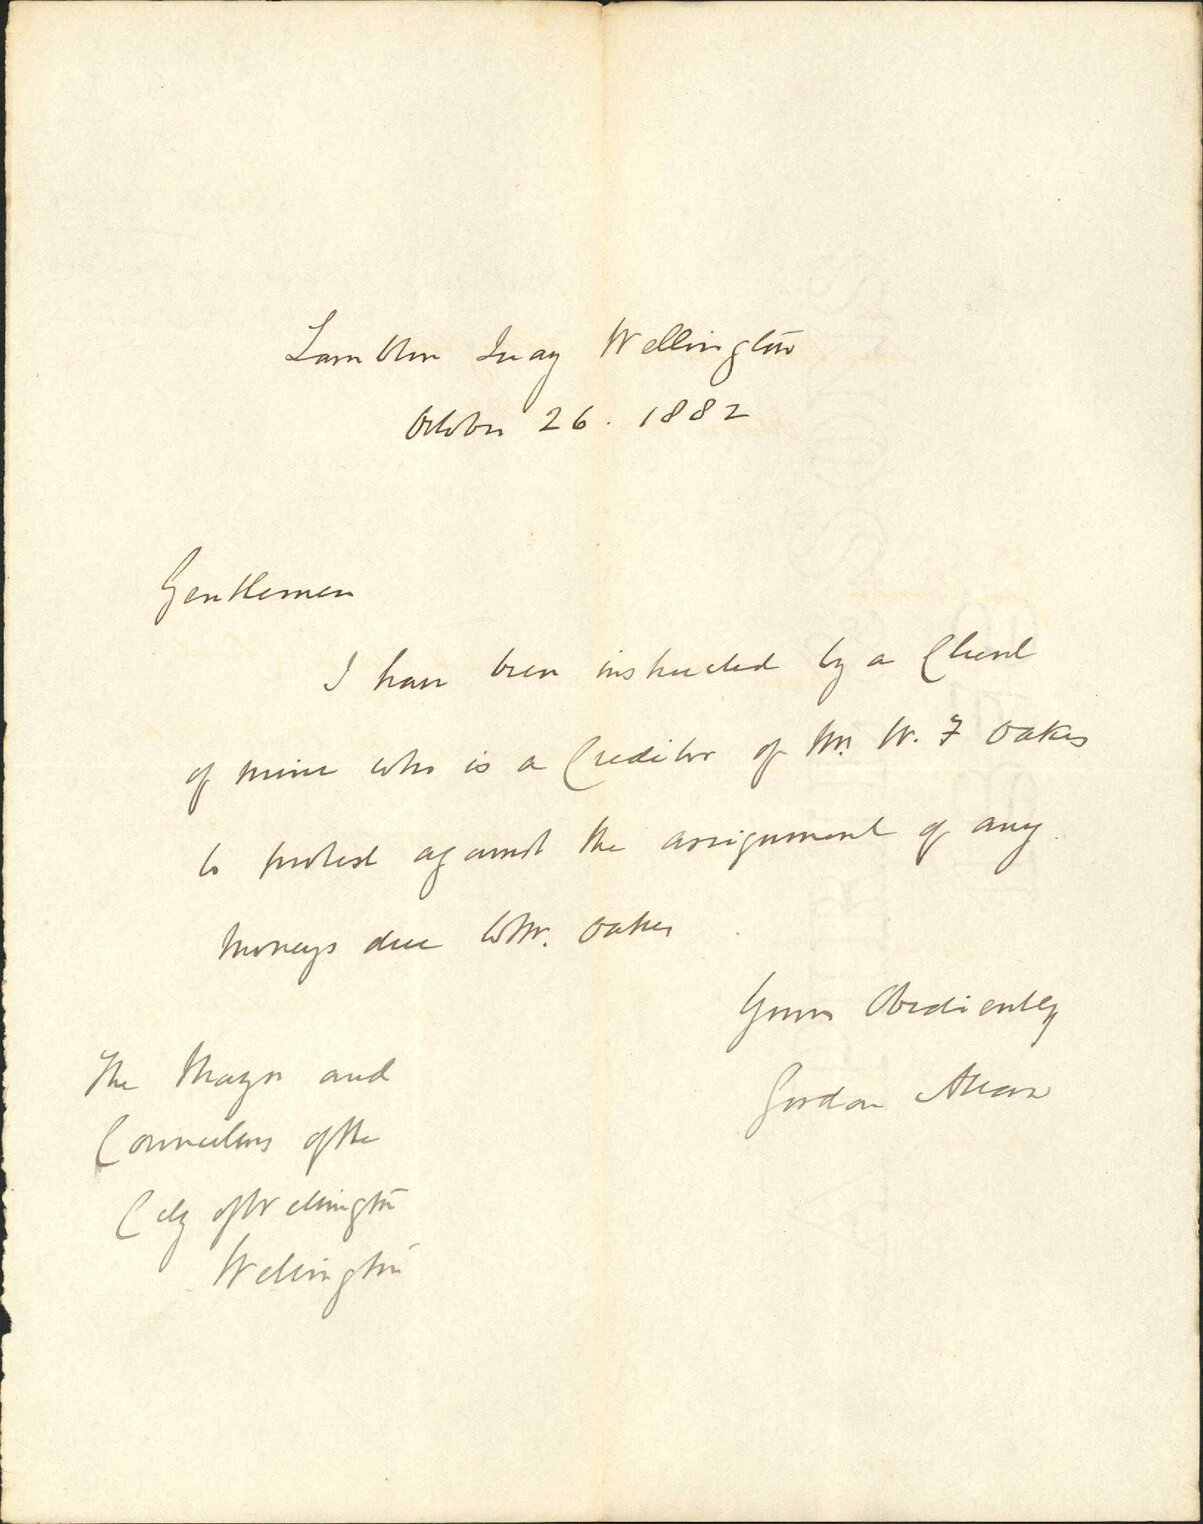 Lambton Quay Wellington
October 26. 1882
Gentlemen
I have been instructed by a Client
of mine who is a Creditor of Mr. W. F Oakes
to protest against the assignment of any
moneys due to Mr. Oakes
Yours Obediently
Gordon Allan
The Mayor and
Councillors of the
City of Wellington
Wellington